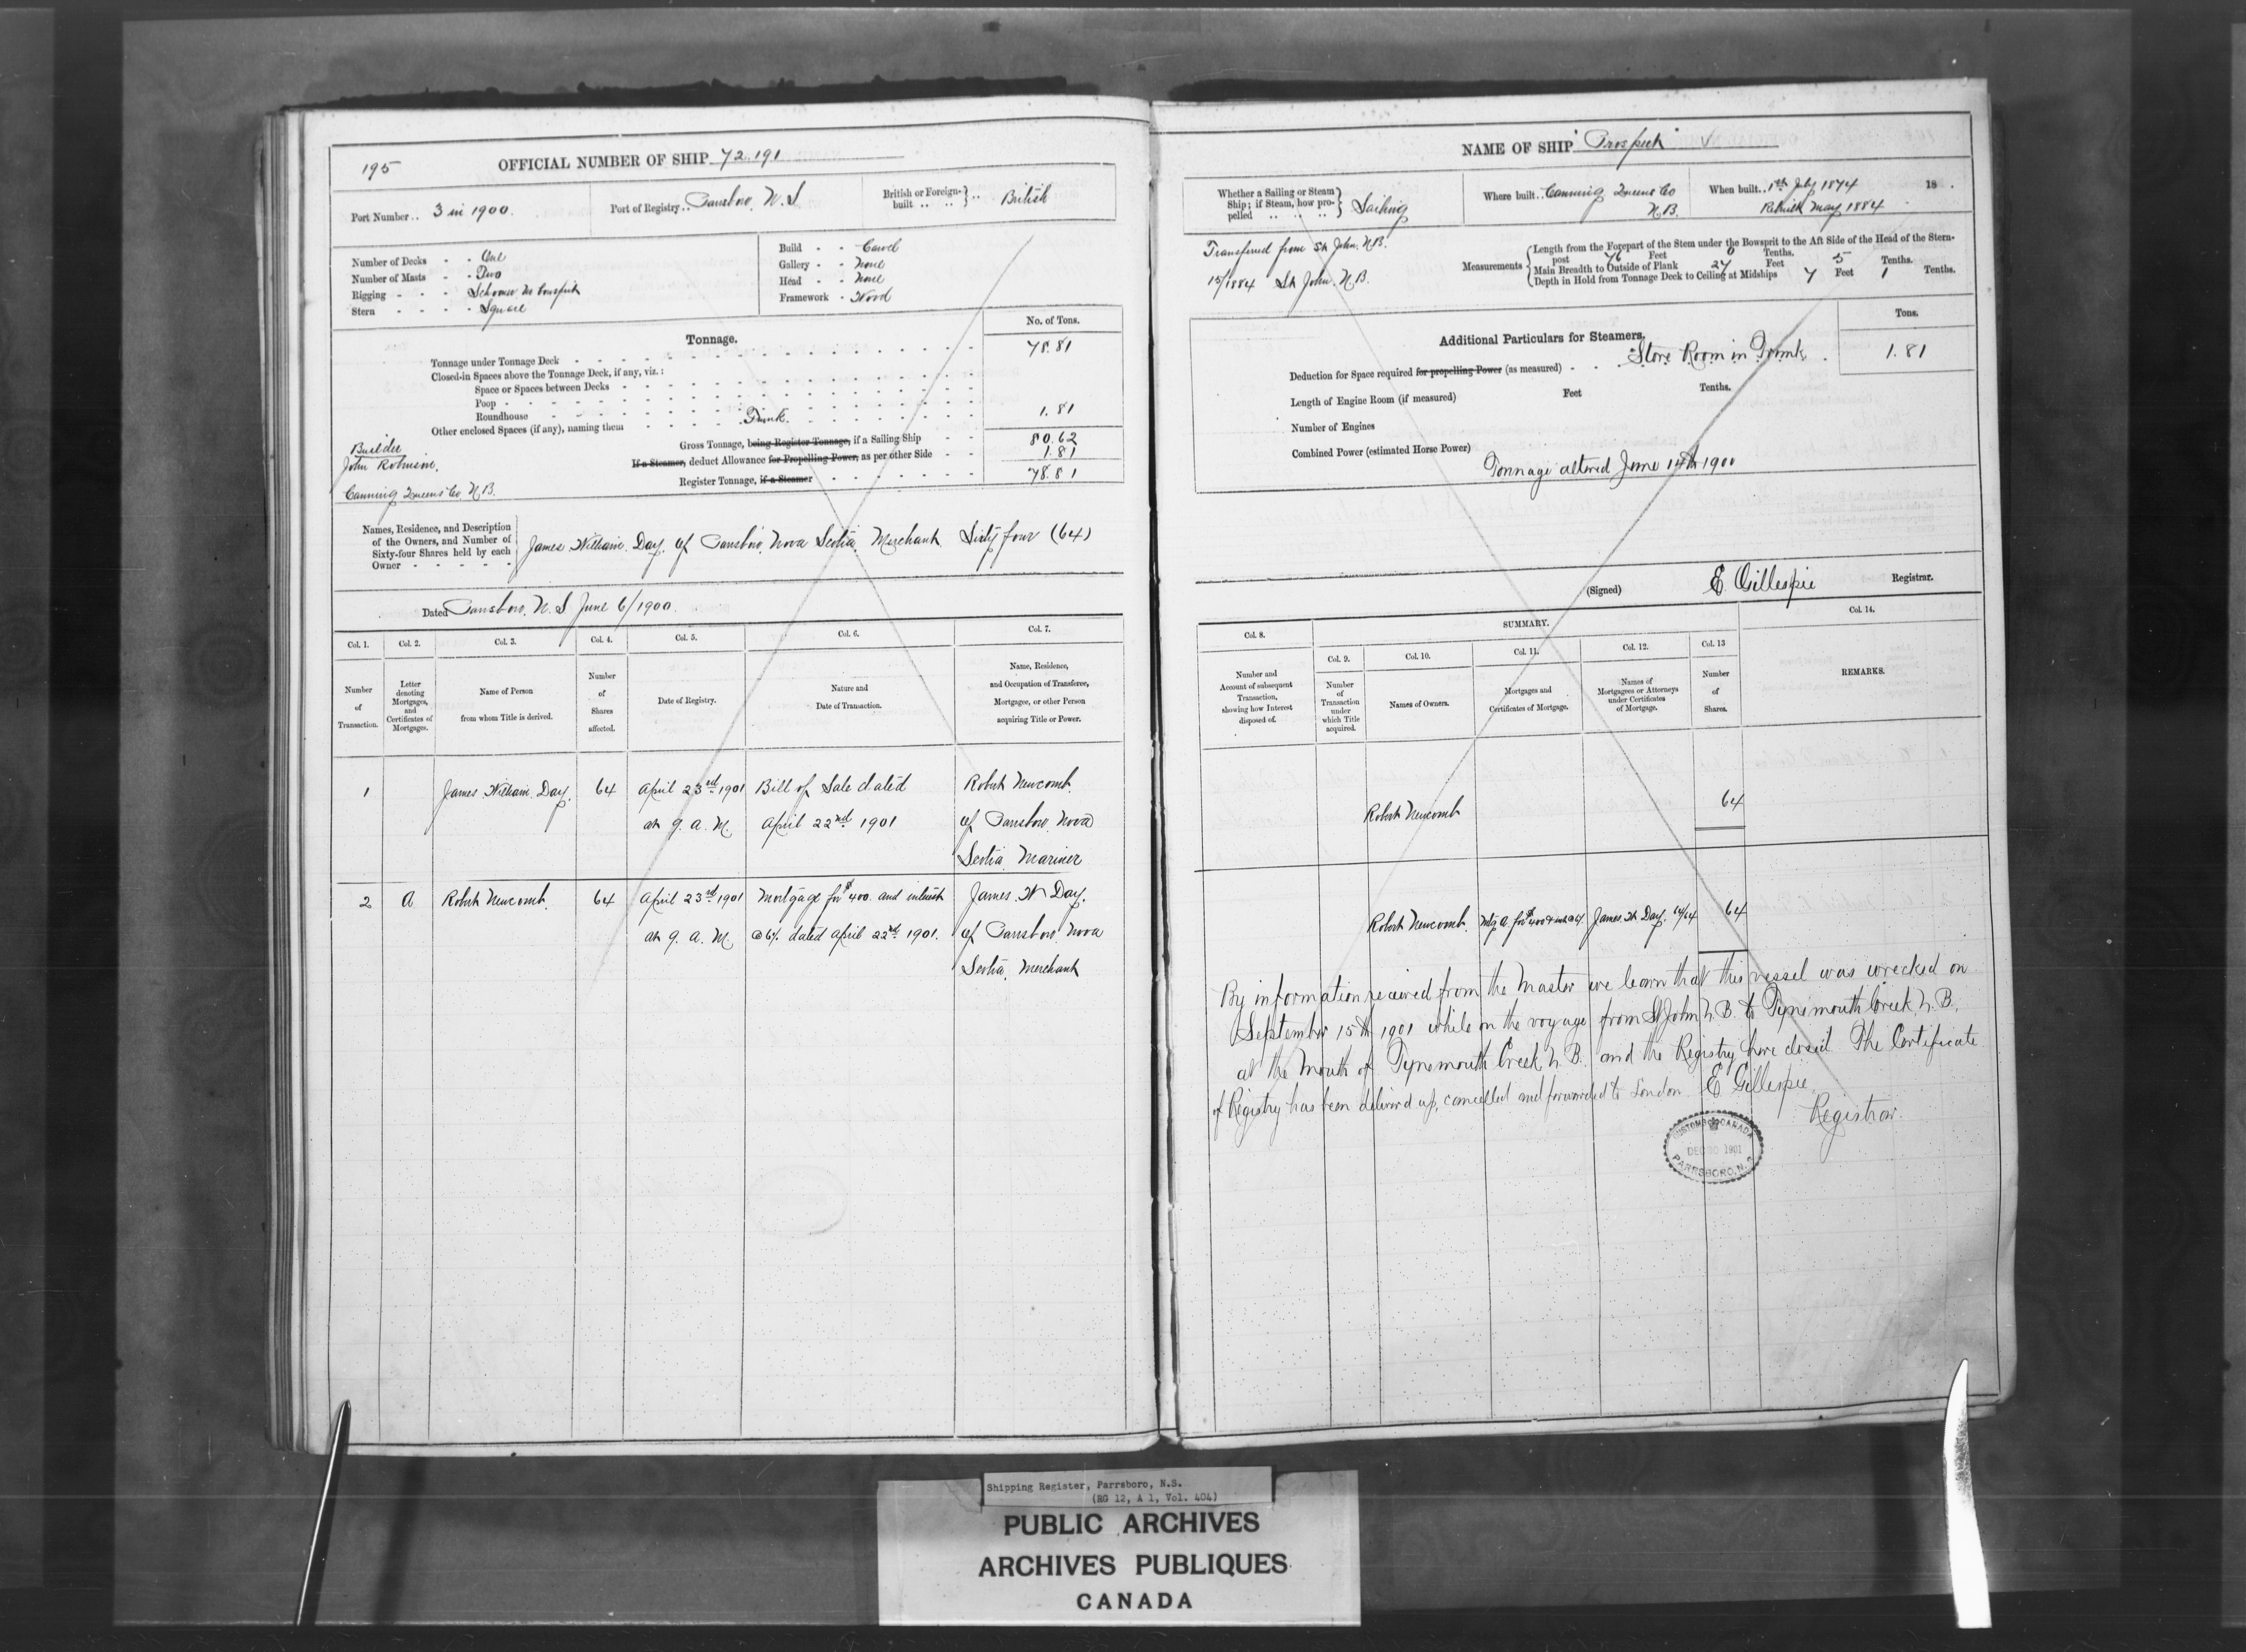 195
OFFICIAL NUMBER OF SHIP 72.191
Port Number .. 3 in 1900.
Port of Registry .. Parrsboro, N. S
British or Foreign-built .. .. } .. British
Number of Decks - - One
Number of Masts - - Two
Rigging - - - Schooner no bowsprit
Stern - - - - Square
Build - - Carvel
Gallery - - None
Head - - None
Framework - Wood
Tonnage.
No. of Tons.
Tonnage under Tonnage Deck 78.81
Closed-in Spaces above the Tonnage Deck, if any, viz.:
Space or Spaces between Decks
Poop
Roundhouse
Other enclosed Spaces (if any), naming them Trunk. 1.81
Gross Tonnage, being Register Tonnage, if a Sailing Ship 80.62
If a Steamer, deduct Allowance for Propelling Power, as per other Side 1.81
Register Tonnage, if a Steamer 78.81
Builder
John Robinson,
Canning Queens Co N.B.
Names, Residence, and Description
of the Owners, and Number of
Sixty-four Shares held by each
Owner - - - - -
James William Day, of Parrsboro, Nova Scotia, Merchant Sixty four (64)
Dated Parrsboro, N. S June 6/1900.
Col. 1. Col. 2. Col. 3. Col. 4. Col. 5. Col. 6. Col. 7.
Number of Transaction.
Letter denoting Mortgages, and Certificates of Mortgages.
Name of Person from whom Title is derived.
Number of Shares affected.
Date of Registry.
Nature and Date of Transaction.
Name, Residence, and Occupation of Transferee, Mortgagee, or other Person acquiring Title or Power.
1 James William Day. 64 April 23rd 1901 Bill of Sale dated Robert Newcomb
at 9. a. M. April 22nd 1901 of Parrsboro, Nova
Scotia, Mariner
2 A Robert Newcomb. 64 April 23rd 1901 Mortgage for $400. and interest James. W Day.
at 9. a. M. @ 6% dated April 22nd 1901. of Parrsboro, Nova
Scotia, Merchant
NAME OF SHIP "Prospect"
Whether a Sailing or Steam Ship; if Steam, how propelled .. .. .. } Sailing
Where built .. Canning Queens Co
N.B.
When built .. 1th July 1874 18 .
Rebuilt May 1884
Transferred from St John, N.B.
15/1884 St John, N.B.
Measurements
Length from the Forepart of the Stem under the Bowsprit to the Aft Side of the Head of the Stern-
post 76 Feet 0 Tenths.
Main Breadth to Outside of Plank 27 Feet 5 Tenths.
Depth in Hold from Tonnage Deck to Ceiling at Midships 7 Feet 1 Tenths.
Additional Particulars for Steamers.
Tons.
Store Room in Trunk
Deduction for Space required for propelling Power (as measured) 1.81
Length of Engine Room (if measured) Feet Tenths.
Number of Engines
Combined Power (estimated Horse Power)
Tonnage altered June 14th 1900
(Signed) E Gillespie Registrar.
SUMMARY.
Col. 8. Col. 9. Col. 10. Col. 11. Col. 12. Col. 13 Col. 14.
Number and Account of subsequent Transaction, showing how Interest disposed of.
Number of Transaction under which Title acquired.
Names of Owners.
Mortgages and Certificates of Mortgage.
Names of Mortgagees or Attorneys under Certificates of Mortgage.
Number of Shares.
REMARKS.
Robert Newcomb 64
Robert Newcomb. Mtg A for $400 & int @ 6% James. W Day. 64/64 64
By information received from the Master we learn that this vessel was wrecked on
September 15th 1901 while on the voyage from St John N. B. to Tynemouth Creek, N. B.,
at the mouth of Tynemouth Creek N. B. and the Registry here closed The Certificate
of Registry has been delivered up, cancelled and forwarded to London E Gillespie
Registrar.
CUSTOMS CANADA
DEC 1901
PARRSBORO, N. S.
Shipping Register, Parrsboro, N.S.
(RG 12, A 1, Vol. 404)
PUBLIC ARCHIVES
ARCHIVES PUBLIQUES
CANADA